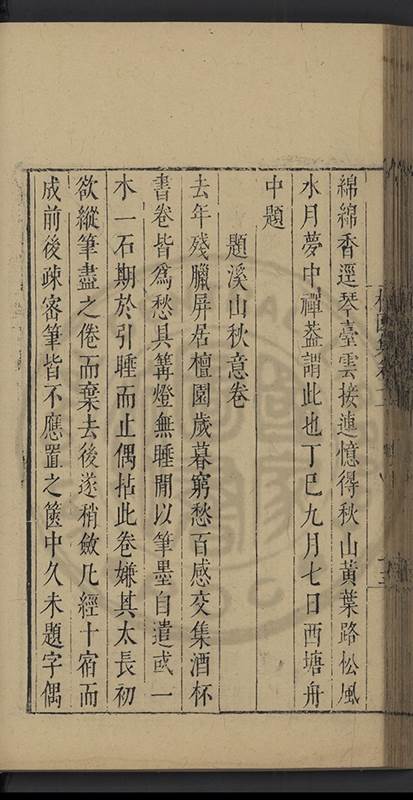 綿綿香逕琴臺雲接連憶得秋山黃葉路松風
水月夢中禪蓋謂此也丁巳九月七日西塘舟
中題
題溪山秋意卷
去年殘臘屏居檀園歲暮窮愁百感交集酒杯
書卷皆爲愁具篝燈無睡閒以筆墨自遣或一
水一石期於引睡而止偶拈此卷嫌其太長初
欲縱筆盡之倦而棄去後遂稍斂凡經十宿而
成前後疎密筆皆不應置之篋中久未題字偶